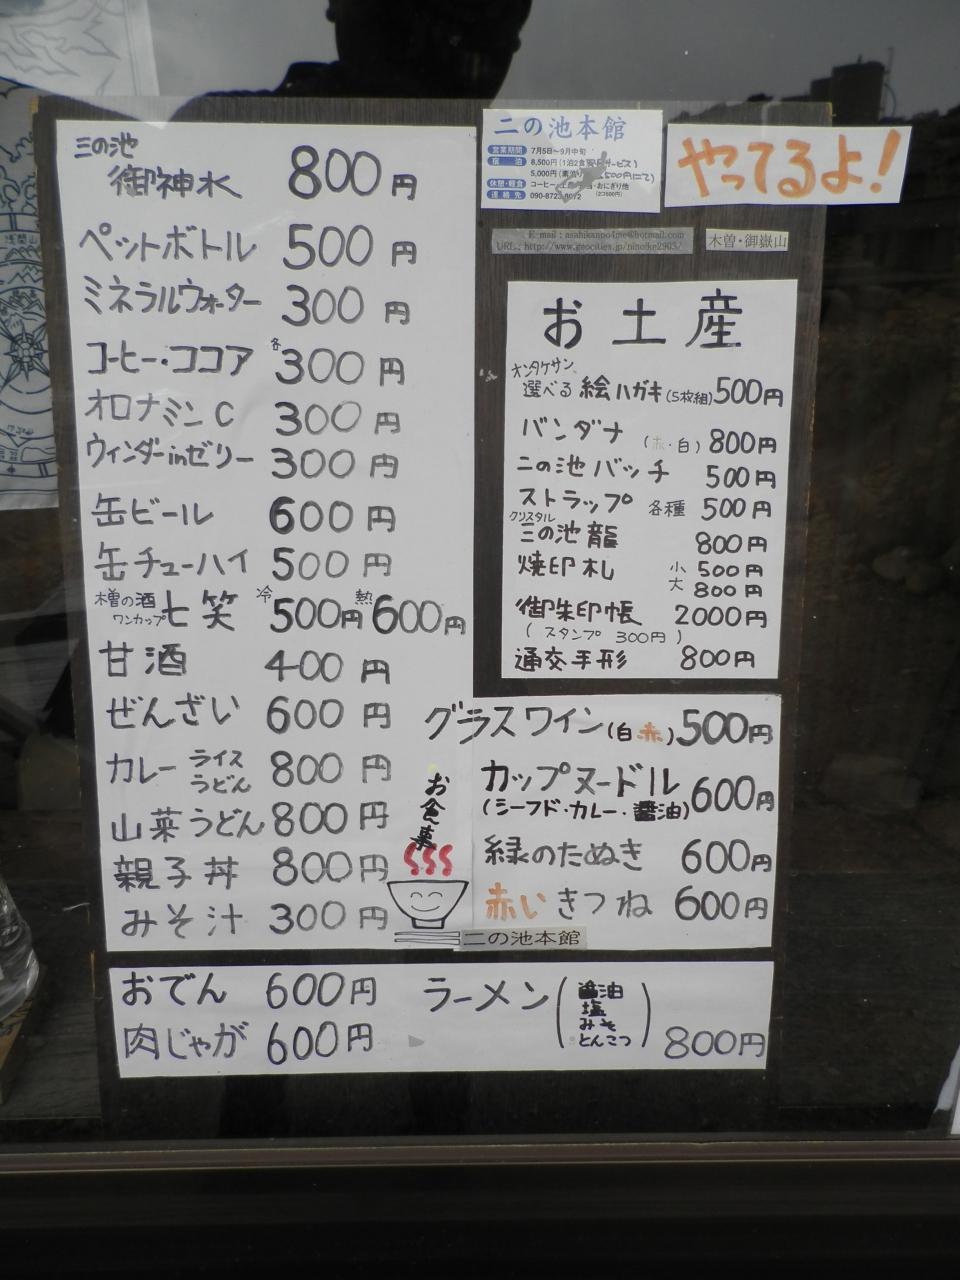 三の池
御神水 800円
ペットボトル 500円
ミネラルウォーター 300円
コーヒー・ココア 各300円
オロナミンC 300円
ウィンダーinゼリー 300円
缶ビール 600円
缶チューハイ 500円
木曽の酒 ワンカップ 七笑 冷500円 熱600円
甘酒 400円
ぜんざい 600円
カレー ライス うどん 800円
山菜うどん 800円
親子丼 800円
みそ汁 300円
お食事
二の池本館
営業期間 7月5日~9月中旬
宿 泊 8,500円(1泊2食 サービス)
5,000円(素泊り 500円にて)
休憩・軽食 コーヒー おにぎり他
連絡先 090-8723
やってるよ!
E-mail : asahikanpo4me@hotmail.com
URL : http://www.geocities.jp/ninoike2903/
木曽・御嶽山
お土産
オンタケサン
選べる 絵ハガキ(5枚組) 500円
バンダナ (赤・白) 800円
二の池バッチ 500円
ストラップ 各種 500円
クリスタル
三の池龍 800円
焼印札 小 500円
大 800円
御朱印帳 2000円
(スタンプ 300円)
通交手形 800円
グラスワイン(白 赤) 500円
カップヌードル 600円
(シーフド・カレー・醤油)
緑のたぬき 600円
赤いきつね 600円
二の池本館
おでん 600円
肉じゃが 600円
ラーメン (醤油 塩 みそ とんこつ) 800円